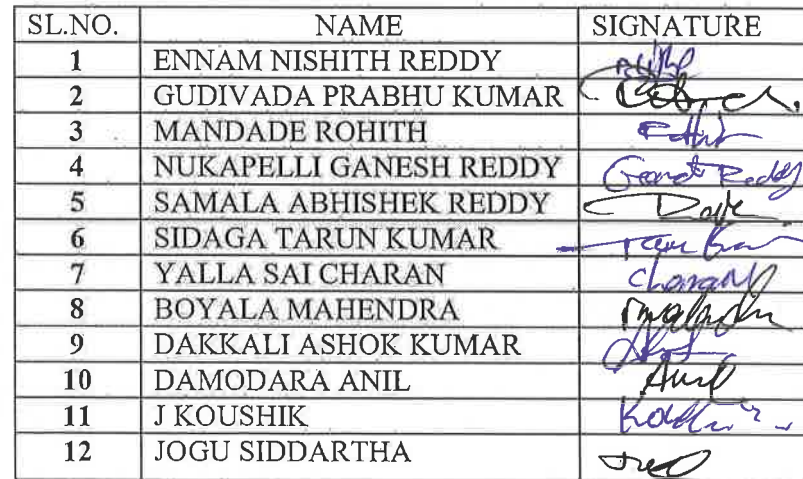 SL.NO. NAME SIGNATURE
1 ENNAM NISHITH REDDY
2 GUDIVADA PRABHU KUMAR
3 MANDADE ROHITH
4 NUKAPELLI GANESH REDDY Reddy
5 SAMALA ABHISHEK REDDY
6 SIDAGA TARUN KUMAR
7 YALLA SAI CHARAN
8 BOYALA MAHENDRA
9 DAKKALI ASHOK KUMAR
10 DAMODARA ANIL Anil
11 J KOUSHIK
12 JOGU SIDDARTHA